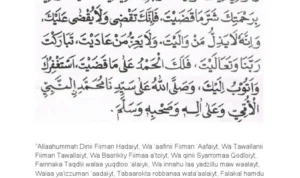 بِرَحْمَتِكَ شَرَّ مَا قَضَيْتَ، فَإِنَّكَ تَقْضِى وَلَا يُقْضَى عَلَيْكَ،
وَإِنَّهُ لَا يَذِلُّ مَنْ وَالَيْتَ، وَلَا يَعِزُّ مَنْ عَادَيْتَ، تَبَارَكْتَ
رَبَّنَا وَتَعَالَيْتَ، فَلَكَ الْحَمْدُ عَلَى مَا قَضَيْتَ، أَسْتَغْفِرُكَ
وَأَتُوْبُ إِلَيْكَ، وَصَلَّى اللهُ عَلَى سَيِّدِنَا مُحَمَّدٍ النَّبِيِّ
الْأُمِّيِّ وَعَلَى آلِهِ وَصَحْبِهِ وَسَلَّمَ.
"Allaahummah Dinii Fiiman Hadaiyt, Wa 'aafinii Fiiman 'Aafaiyt, Wa Tawallanii
Fiiman Tawallaiyt, Wa Baarikliy Fiimaa a'toiyt, Wa qinii Syarromaa Qodloiyt,
Fainnaka Taqdii walaa yuqdloo 'alaiyk, Wa innahu laa yadzillu maw waalayt,
Walaa ya'izzuman 'aadaiyt, Tabaarokta robbanaa wata'aalaiyt, Falakal hamdu